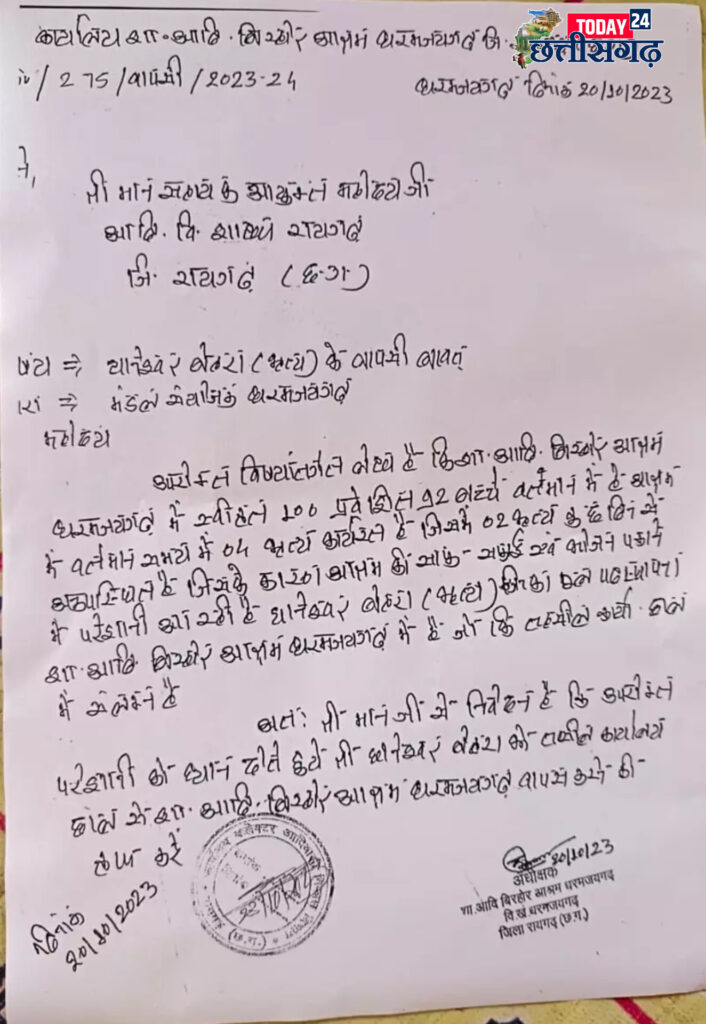 TODAY 24
छत्तीसगढ़
कार्यालय शा. आदि. बिरहोर आश्रम धरमजयगढ़ जि.
/ 275 / वापसी / 2023-24 धरमजयगढ़ दिनांक 20/10/2023
श्री मान सहायक आयुक्त महोदय जी
आदि. वि. शाखा रायगढ़
जि. रायगढ़ (छ.ग)
⇒ धानेश्वर बेहरा (भृत्य) के वापसी बाबत्
⇒ मंडल संयोजक धरमजयगढ़
महोदय
उपरोक्त विषयांतर्गत लेख है कि शा. आदि. बिरहोर आश्रम
धरमजयगढ़ में स्वीकृत 100 प्रवेशित 92 बच्चे वर्तमान में है आश्रम
में वर्तमान समय में 04 भृत्य कार्यरत है जिसमें 02 भृत्य कुछ दिन से
अनुपस्थित है जिसके कारण आश्रम की साफ-सफाई एवं भोजन पकाने
में परेशानी आ रही है धानेश्वर बेहरा (भृत्य) जिनका मूल पदस्थापना
शा. आदि. बिरहोर आश्रम धरमजयगढ़ में है जो कि तहसील कार्या. छाल
में संलग्न है
अतः श्री मान जी से निवेदन है कि उपरोक्त
परेशानी को ध्यान देते हुये श्री धानेश्वर बेहरा को तहसील कार्यालय
छाल से शा. आदि. बिरहोर आश्रम धरमजयगढ़ वापस करने की
कृपा करें
दिनांक
20/10/2023
20/10/23
अधीक्षक
शा.आदि बिरहोर आश्रम धरमजयगढ़
वि.खं धरमजयगढ़
जिला रायगढ़ (छ.ग.)